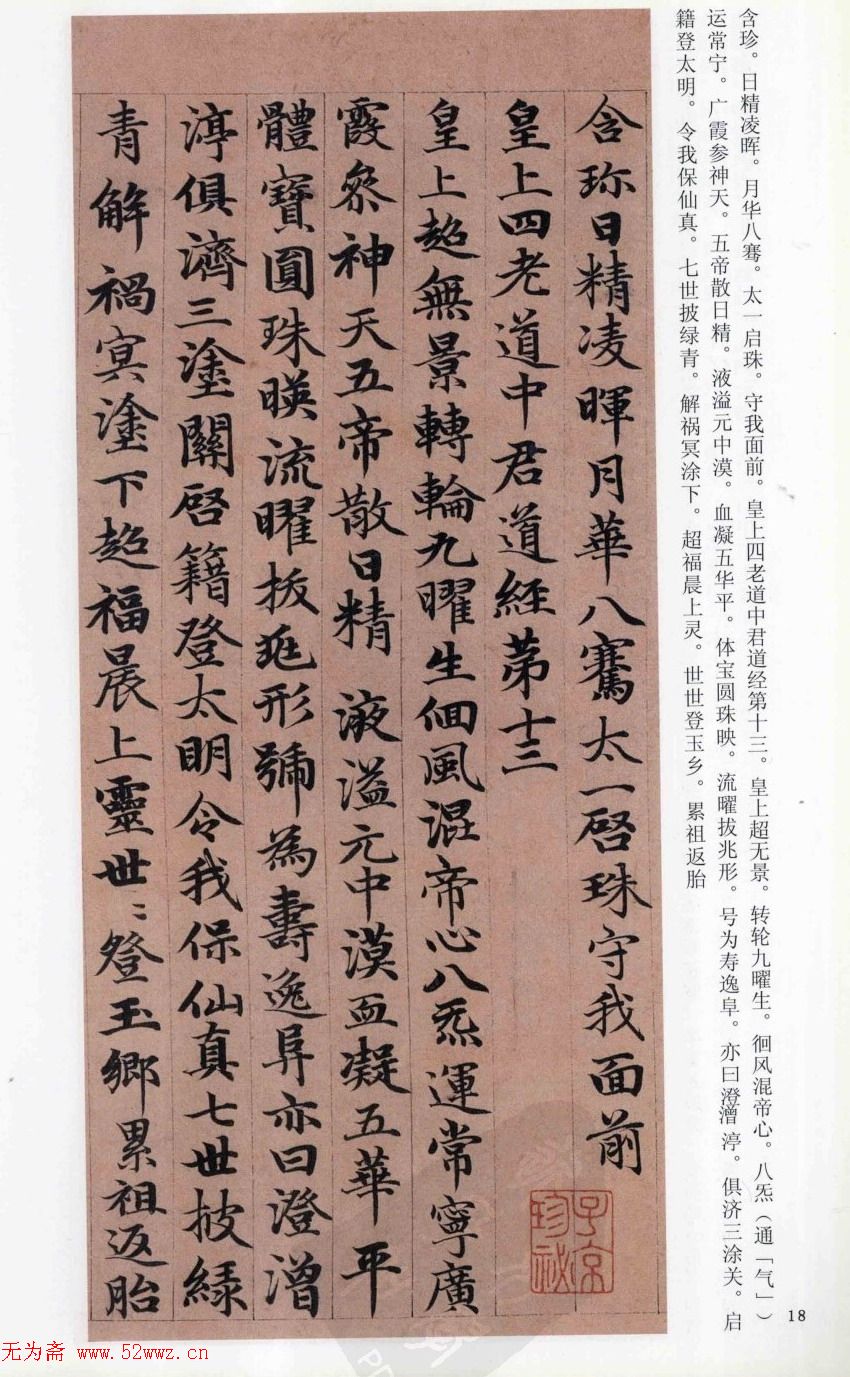 含珍。日精凌晖。月华八骞。太一启珠。守我面前。皇上四老道中君道经第十三。皇上超无景。转轮九曜生。徊风混帝心。八炁（通「气」）
运常宁。广霞参神天。五帝散日精。液溢元中漠。血凝五华平。体宝圆珠映。流曜拔兆形。号为寿逸阜。亦曰澄澘渟。俱济三涂关。启
籍登太明。令我保仙真。七世披绿青。解祸冥涂下。超福晨上灵。世世登玉乡。累祖返胎
含珎日精凌暉月華八騫太一啓珠守我面前
皇上四老道中君道經苐十三
皇上超無景轉輪九曜生佪風混帝心八炁運常寧廣
霞叅神天五帝散日精液溢元中漠血凝五華平
體寶圓珠暎流曜拔兆形號為壽逸阜亦曰澄澘
渟俱濟三塗關啓籍登太明令我保仙真七世披緑
青解禍冥塗下超福晨上靈世〻登玉鄉累祖返胎
子京
珍祕
18
无为斋 www.52wwz.cn